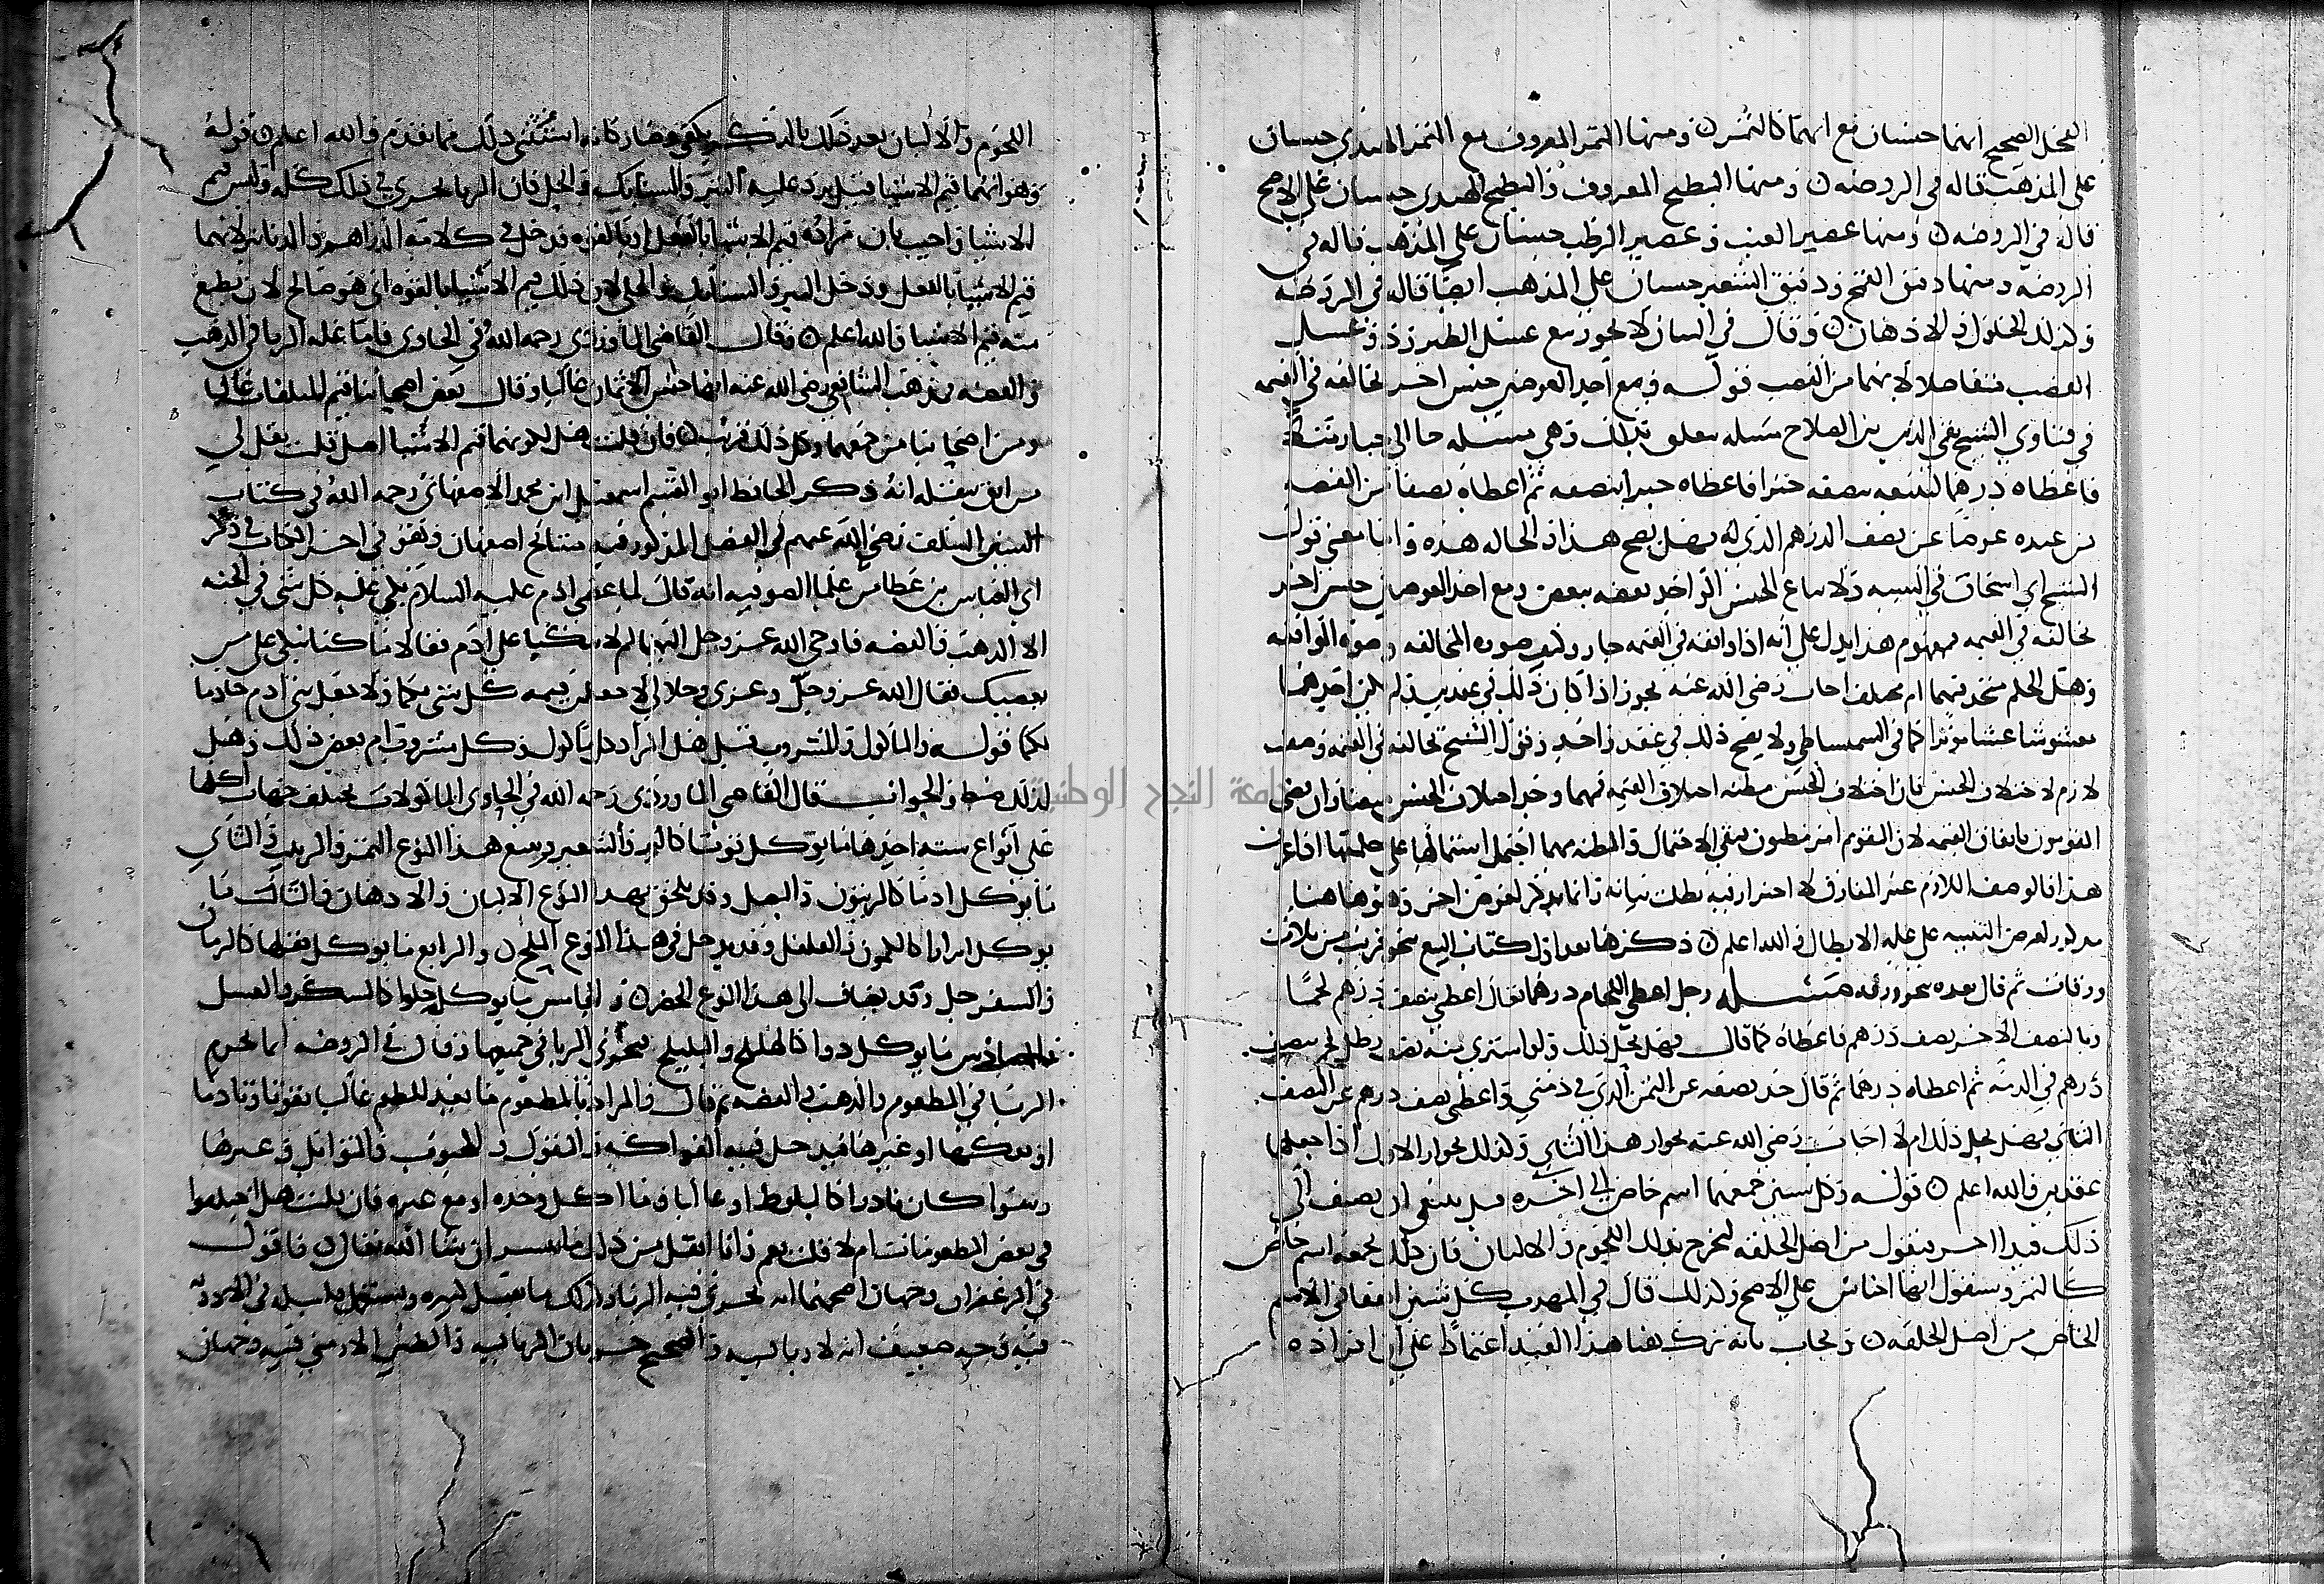 النخل الصحيح انهما جنسان مع انهما كالتمر ومنها التمر المعروف مع التمر الهندي جنسان
على المذهب قاله في الروضه ومنها البطيخ المعروف والبطيخ الهندي جنسان على الاصح
قاله في الروضه ومنها عصير العنب وعصير الرطب جنسان على المذهب قاله في
الروضة ومنها دقيق القمح ودقيق الشعير جنسان على المذهب ايضا قاله في الروضة
وكذلك الخلول والادهان وقال في البيان لا يجوز بيع عسل الطبرزد وعسل
القصب متفاضلا لانهما من القصب قوله ومع احد العوضين جنس اخر يخالفه في القيمه
في فتاوي الشيخ تقي الدين بن الصلاح مسله تتعلق بذلك وهي مسله جا الى خباز
فاعطاه درهما لبيعه بنصفه خبزا فاعطاه خبزا بنصفه ثم اعطاه نصفا من الفضه
من عنده عوضا عن نصف الدرهم الذي له فهل يصح هذا والحاله هذه وما معنى قول
الشيخ ابي اسحاق في التنبيه ولا يباع الجنس الواحد بعضه ببعض ومع احد العوضين جنس اخر
يخالفه في القيمه فمفهوم هذا يدل على انه اذا وافقه في القيمه جاز صوره المخالفه وصوره الموافقه
وهل الحكم متحد فيهما ام مختلف اجاب رضي الله عنه يجوز اذا كان ذلك في عقدين ولم يكن احدهما
مغشوشا غشا موثرا ولا يصح ذلك في عقد واحد وقول الشيخ يخالفه في القيمه وصف
لازم لاختلاف الجنس فان اختلاف الجنس مظنه اختلاف القيمه فيهما
المقومون باتفاق القيمه لان التقويم امر مظنون
هذا فالوصف اللازم غير المفارق لا احتراز فيه يطلب بيانه وانما يذكر لغرض اخر وهو هاهنا
مذكور لغرض التنبيه على عله الابطال والله اعلم ذكرها بعد اول كتاب البيع بنحو قريب من ثلاث
ورقات ثم قال بعده بنحو ورقه مسئله رجل اعطى اللحام درهما فقال اعطني بنصف درهم لحما
وبالنصف الاخر نصف درهم فاعطاه كما قال فهل يحل ذلك ولو اشترى منه نصف رطل لحم بنصف
درهم في الذمه ثم اعطاه درهما ثم قال خذ نصفه عن الثمن الذي في ذمتي واعطني نصف درهم عن النصف
الثاني فهل يحل ذلك ام لا اجاب رضي الله عنه بجواز هذا الثاني وكذلك بجواز الاول اذا جعلها
عقدين والله اعلم قوله وكل شيئين جمعهما اسم خاص الى اخره قيل ينبغي ان يضيف الى
ذلك قيدا اخر فيقول من اصل الخلقه ليخرج بذلك اللحوم والالبان فان ذلك يجمعه اسم خاص
كالتمر وسنقول انها اجناس على الاصح ولذلك قال في المهذب كل شيئين اتفقا في الاسم
الخاص من اصل الخلقه ويجاب بانه ترك هنا هذا القيد اعتمادا على ان افراده
اللحوم والالبان بعد ذلك بالذكر يكفي فصار كانه استثنى ذلك مما تقدم والله اعلم قوله
وهو انهما قيم الاشيا قيل يرد عليه التبر والسبائك والحلي فان الربا يجري في ذلك كله وليس قيم
الاشيا واجيب بان مراده قيم الاشيا بالفعل او بالقوه فدخل في كلامه الدراهم والدنانير لانهما
قيم الاشيا بالفعل ودخل التبر والسبائك والحلي لان ذلك قيم الاشيا بالقوه اي هو صالح لان يطبع
منه قيم الاشيا والله اعلم وقال القاضي الماوردي رحمه الله في الحاوي فاما عله الربا في الذهب
والفضه فمذهب الشافعي رضي الله عنه انها جنس الاثمان غالبا وقال بعض اصحابنا قيم المتلفات غالبا
ومن اصحابنا من جمعهما وكل ذلك قريب فان قلت هل لكونهما قيم الاشيا اصل قلت نقل لي
من اثق بنقله انه ذكر الحافظ ابو القسم اسمعيل ابن محمد الاصفهاني رحمه الله في كتاب
السير السلف رضي الله عنهم في الفصل المذكور فيه مشائخ اصفهان وهو في اخر الكتاب في ذكر
ابي العباس بن عطا من علما الصوفيه انه قال لما عصى ادم عليه السلام بكى عليه كل شي في الجنه
الا الذهب والفضه فاوحى الله عز وجل اليهما لم لا تبكيا على ادم فقالا ما كنا نبكي على من
يعصيك فقال الله عز وجل وعزتي وجلالي لاجعلن قيمه كل شي بكما ولاجعلن بني ادم خادما
لكما قوله والماكول والمشروب قيل هل المراد كل ماكول وكل مشروب ام بعض ذلك وهل
لذلك ضبط والجواب قال القاضي الماوردي رحمه الله في الحاوي الماكولات يختلف جهات اكلها
على انواع سته احدها ما يوكل قوتا كالبر والشعير ويتبع هذا النوع التمر والزبيب والثاني
ما يوكل ادما كالزيتون والبصل وقد يلحق بهذا النوع الالبان والادهان والثالث ما
يوكل ابزارا كالكمون والفلفل وقد يدخل في هذا النوع الملح والرابع ما يوكل تفكها كالرمان
والسفرجل وقد يضاف الى هذا النوع الخضر والخامس ما يوكل حلوا كالسكر والعسل
والسادس ما يوكل دوا كالهليلج والبليلج فيجري الربا في جميعها وقال في الروضه انما يحرم
الربا في المطعوم والذهب والفضه ثم قال والمراد بالمطعوم ما يعد للطعم غالبا تقوتا وتادما
او تفكها او غيرها فيدخل فيه الفواكه والبقول والحبوب والتوابل وغيرها
وسوا كان نادرا كالبلوط او غالبا وما اكل وحده او مع غيره فان قلت هل اختلفوا
في بعض المطعومات ام لا قلت نعم وانا انقل من ذلك ما تيسر ان شا الله تعالى فاقول
في الزعفران وجهان اصحهما انه يجري فيه الربا
فيه وجه ضعيف انه لا ربا فيه والصحيح جريان الربا فيه والطين الارمني فيه وجهان